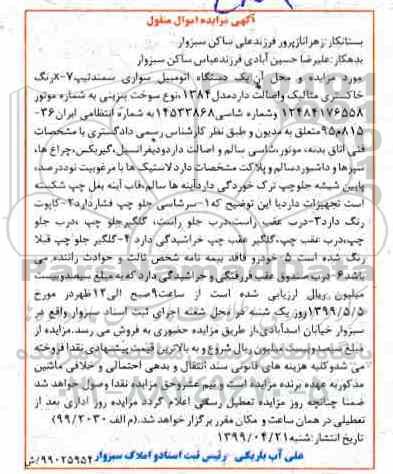 آگهی مزایده اموال منقول
بستانکار: زهرا نازپرور فرزند علی ساکن سبزوار
بدهکار: علیرضا حسین آبادی فرزند عباس ساکن سبزوار
مورد مزایده و محل آن یک دستگاه اتومبیل سواری سمندتیپ x-۷رنگ
خاکستری متالیک واصالت داردمدل۱۳۸۴،نوع سوخت بنزینی به شماره موتور
۱۲۴۸۴۱۷۶۵۵۸ وشماره شاسی۱۴۵۳۳۸۶۸به شماره انتظامی ایران۳۶-
۸۱۵م۹۵متعلق به مدیون و طبق نظر کارشناس رسمی دادگستری با مشخصات
فنی اتاق بدنه، موتور،شاسی سالم و اصالت دارددیفرانسیل،گیربکس،چراغ ها،
سپرها و داشبورد سالم و پلاکت مشخصات دارد لاستیک ها با مرغوبیت نوددرصد،
پایین شیشه جلوچپ ترک خوردگی داردآینه ها سالم،قاب آینه بغل چپ شکسته
است تجهیزات داردبا این توضیح که۱-سرشاسی جلو چپ فشاردارد۲-کاپوت
رنگ دارد۳-درب عقب راست،درب جلو راست، گلگیرجلو چپ ،درب جلو
چپ،درب عقب چپ،گلگیر عقب چپ خراشیدگی دارد ۴-گلگیر جلو چپ قبلا
رنگ شده است ۵-خودرو فاقد بیمه نامه شخص ثالث و حوادث راننده می
باشد۶- درب صندوق عقب فررفتگی و خراشیدگی دارد که به مبلغ سیصدوبیست
میلیون ریال ارزیابی شده است از ساعت۹صبح الی۱۲ظهردر مورخ
۱۳۹۹/۵/۵روز یک شنبه در محل شعبه اجرای ثبت اسناد سبزوار واقع در
سبزوار خیابان اسدآبادی،از طریق مزایده حضوری به فروش می رسد.مزایده از
مبلغ سیصدوبیست میلیون ریال شروع و به بالاترین قیمت پیشنهادی نقدا فروخته
می شدوکلیه هزینه های قانونی سند انتقال و بدهی احتمالی و خلافی ماشین
مذکوربه عهده برنده مزایده است و نیم عشروحق مزایده نقدا وصول خواهد شد
ضمنا چنانچه روز مزایده تعطیل رسمی اعلام گردد مزایده روز اداری بعد از
تعطیلی در همان ساعت و مکان مقرر برگزار خواهد شد.(م الف ۹۹/۲۰۳۰)
تاریخ انتشار:شنبه ۱۳۹۹/۰۴/۲۱
علی آب باریکی رئیس ثبت اسناد و املاک سبزوار ۹۹۰۲۵۹۵۴/ش